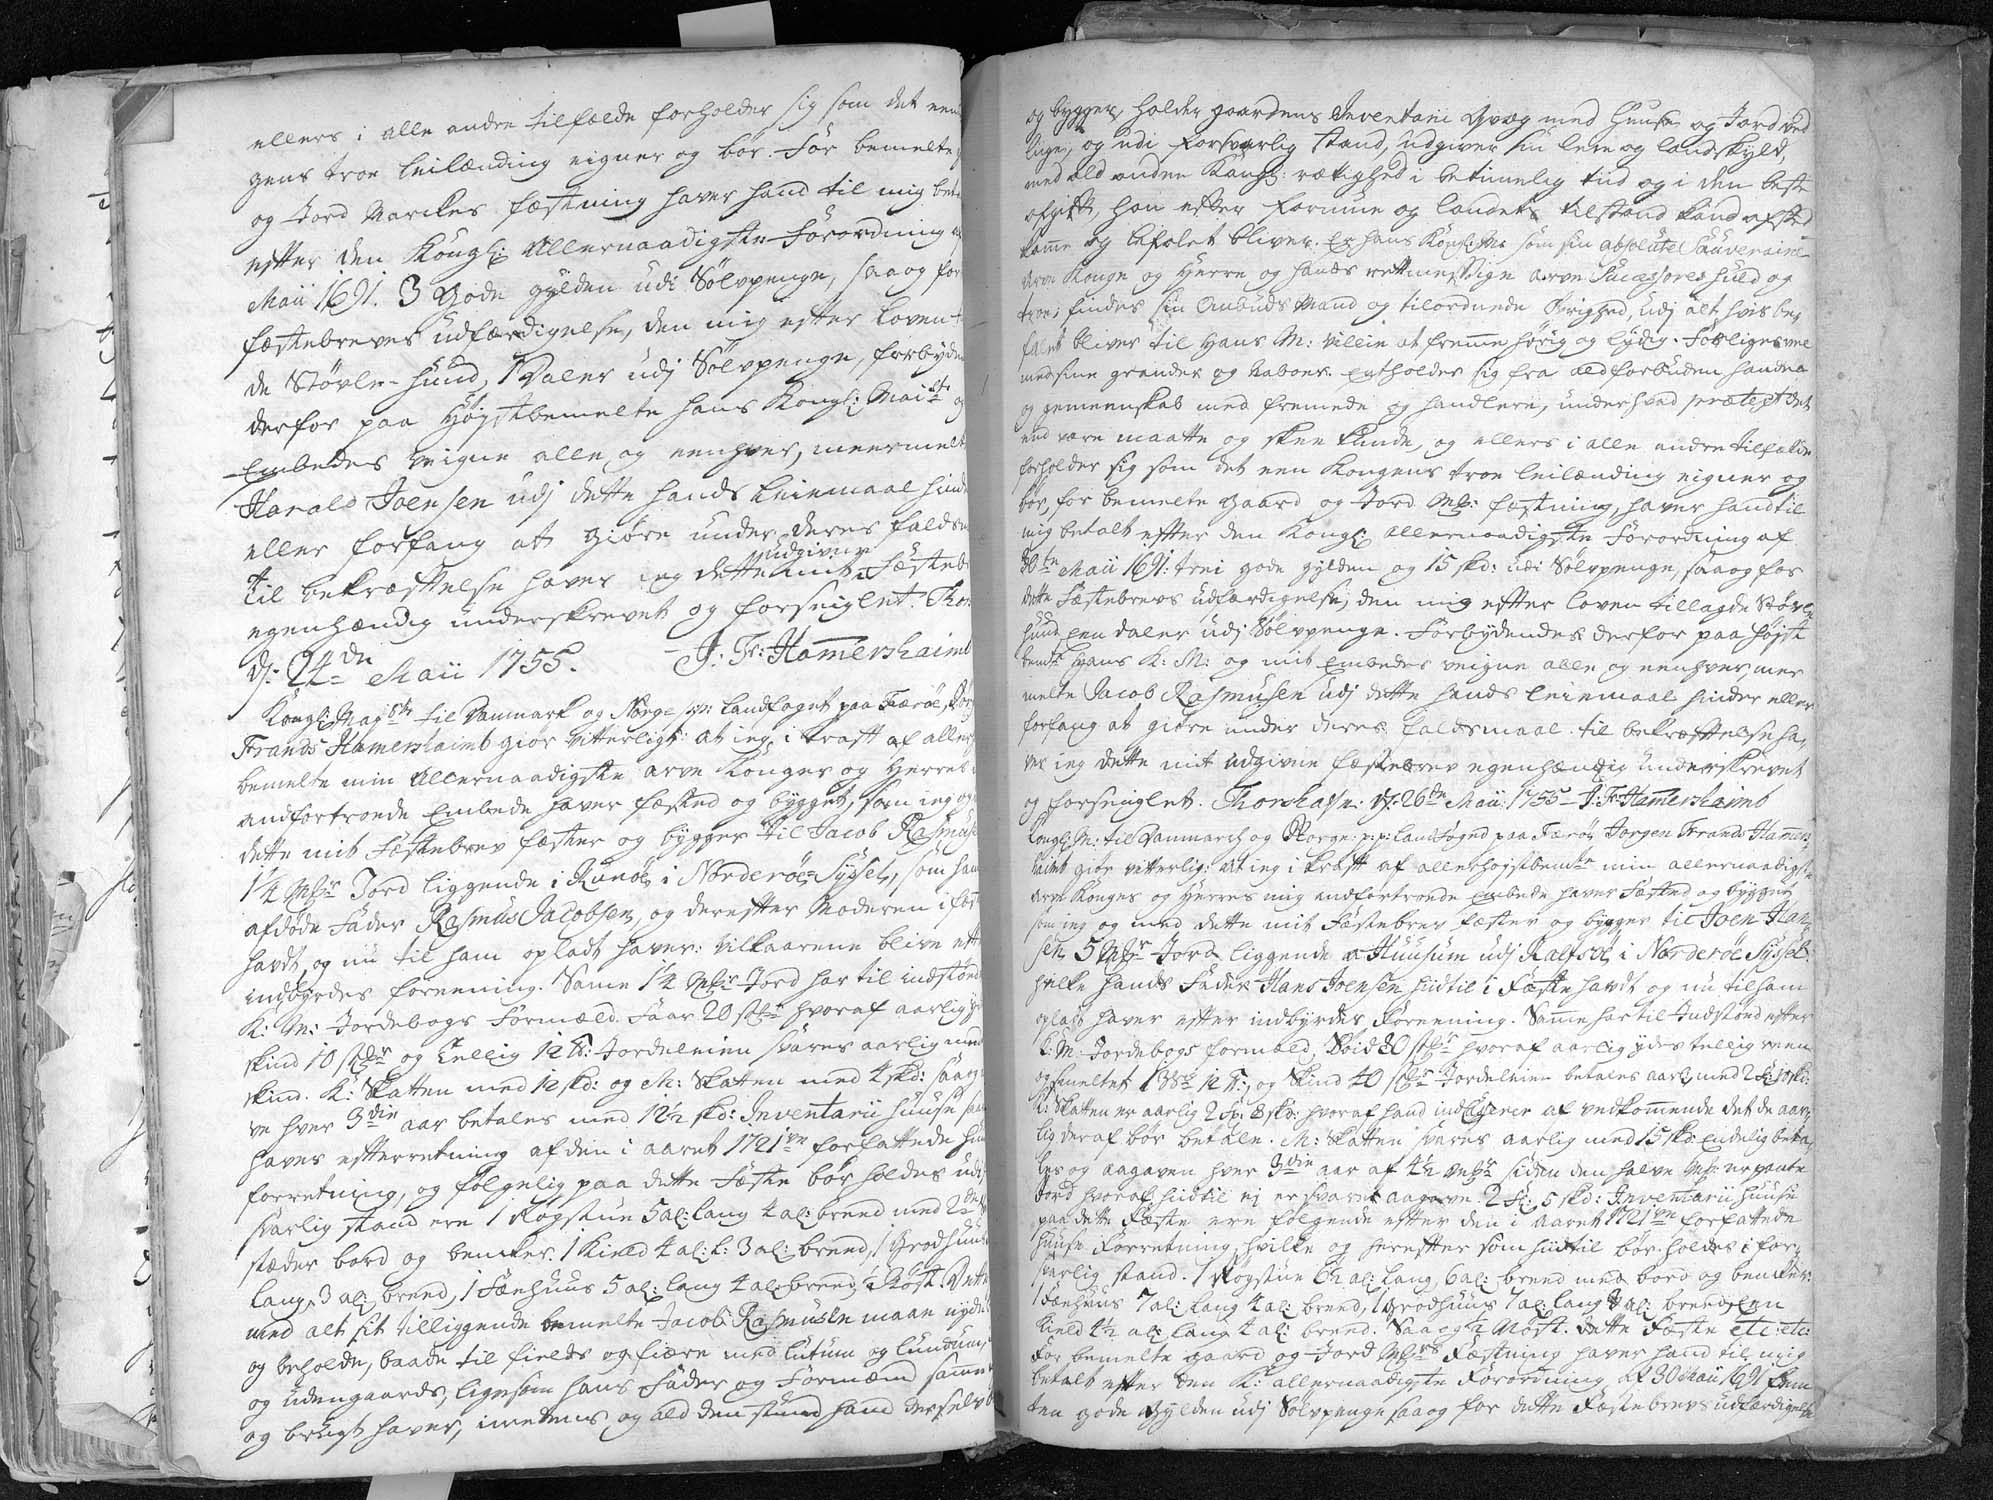 ellers i alle andre tilfælde forholder sig som det een
gens troe leilænding eigner og bør. For bemelte
og Jord Marckes fæstning haver hand til mig bet
efter den Kongl: Allernaadigste Forordning
Maii 1691. 3 Gode gylden udi Sølvpenge, saa og for
fæstebreves udfærdigelse, den mig efter Loven
de Støvle-Hund, 1 Daler udj Sølvpenge, forbyden
derfor paa Højstbemelte hans Kongl: Mai.ts og
Embedes veigne alle og eenhver, meermelte
Harald Joensen udj dette hands leiemaal hinder
eller forfang at giøre under deres faldsm
til bekræftelse haver jeg dette mit udgivne Fæstebr
egenhændig underskrevet og forseiglet. Thor
D: 24de Maii 1755. J: Fr: Hamershaimb
Kongl: May.sts til Danmark og Norge p:p: Landfoget paa Færöe, Jörg
Frands Hamershaimb giör vitterligt: at jeg i kraft af aller
bemelte min Allernaadigste arve Konges og Herres
andfortroede Embede haver fæsted og bygget, som jeg og
dette mit Fæstebrev fæster og bygger til Jacob Rasmuse
1½ Mkr Jord liggende i Kunöe i Norderöe-Syssel, som han
afdöde Fader Rasmus Jacobsen, og derefter Moderen i fæst
havdt, og nu til ham opladt haver: vilkaarene blive eft
indbyrdes foreening. Same 1½ Mkr Jord har til indstönd
K: M: Jordebogs Formæld. Faar 20 stkr hvoraf aarlig y
skind 10 stkr og Tellig 12 ℔: Jordeleien svares aarlig med
skind. K: Skatten med 12 skd: og M: Skatten med 4 skd: saa og
ve hver 3die aar betales med 12½ skd: Inventarii huuse saa
haves efterretning af den i aaret 1721ve forfattede hu
forretning, og fölgelig paa dette Fæste bör holdes udi
svarlig stand ere 1 Rögstue 5 al: lang 4 al: breed med 2de
stæder bord og bencker. 1 Kield 4 al: l: 3 al: breed, 1 Brödhuus
lang 3 al: breed, 1 Fæehuus 5 al: lang 4 al: breed, 1 Möst. Dette
med alt sit tilliggende bemelte Jacob Rasmusen maae nyde
og beholde, baade til fields og fiære med lutum og lundum,
og udengaards, ligesom hans Fader og Formænd samme
og brugt haver, imedens og ald den stund hand derselv b
og bygger, holder gaardens Inventarii Qvæg med Huuse og Jord ved
lige, og udi forsvarlig stand, udgiver sin leie og landskyld,
med ald anden Kongl: rettighed i betimelig tiid og i den beste
afgift, han efter formue og landets tilstand kand afsted
kome og befalet bliver. Er hans Kongl: M: som sin absolute Souveraine
Arve Konge og Herre og hands rettmessige arve Sucessores huld og
troe; findes sin Ombuds Mand og tilordnede Övrighed, udj alt hvis be,
falet bliver til Hans M: villie at freme hörig og lydig. Forliges vel
med sine grander og Naboer. Entholder sig fra ald forbuden handel
og gemeenskab med fremede og handlere, under hvad prætext det
end være maatte og skee kunde, og ellers i alle andre tilfælde
forholder sig som det een Kongens troe leilænding eigner og
bör, for bemelte gaard og Jord Mk: fæstning, haver hand til
mig betalt efter den Kongl: allernaadigste Forordning af
30te Maii 1691: trei gode gylden og 15 skd: udi Sölvpenge, saa og for
dette Fæstebrevs udfærdigelse, den mig efter loven tillagde Støvle
Hund een daler udj Sölvpenge. Forbydendes derfor paa højst
bem.te Hans K: M: og mit Embedes veigne alle og eenhver, mer
melte Jacob Rasmusen udj dette hands leiemaal hinder eller
forfang at giöre under deres faldsmaal. til bekræftelse ha,
ver jeg dette mit udgivne fæstebrev egenhændig underskrevet
og forseiglet. Thorshafn: D: 26de Maii 1755 J: Fr: Hamershaimb
Kongl: M: til Danmarck og Norge p:p: landfoged paa Færöe Jørgen Frands Hamers,
haimb giör vitterlig: at jeg i kraft af allerhøjstbem.te min allernaadigste
arve Konges og Herres mig andfortroede Embede haver Fæsted og bygget
som jeg og med dette mit Fæstebrev fæster og bygger til Joen Han,
sen 5 Mkr Jord liggende a Huusum udj Kalsöe, i Norderöe Syssel,
hvilke hands Fader Hans Joensen hidtil i Fæste havdt og nu til ham
opladt haver efter indbyrdes Foreening. Same har til Indstönd efter
K: M: Jordebogs formæld, Söid 80 stkr hvoraf aarlig ydes tellig reen
og smeltet 12 ℔:, og Skind 40 stkr Jordeleien betales aarl: med
K: Skatten er aarlig 2 Gl: 8 skd: hvoraf hand indkræver af vedkomende det de aar,
lig deraf bör betale. M: Skatten svares aarlig med 15 skd: Endelig beta,
les og aagaven hver 3die aar af 4½ Mkr siden den halve Mk: er pante
Jord hvoraf hidtil ej er svaret aagave. 2 Gl: 5 skd: Inventarii huuse
paa dette Fæste ere fölgende efter den i aaret 1721ve forfattede
Huuse Forretning, hvilke og herefter som hidtil bör holdes i for,
svarlig stand. 1 Rögstue 6½ al: lang, 6 al: breed med bord og bencker:
1 Fæehuus 7 al: lang 4 al: breed, 1 Brödhuus 7 al: lang 4 al: breed, Een
Kield 4½ al: lang 4 al: breed. Saa og ½ Möst. Dette Fæste etc: etc:
For bemelte gaard og Jord Mkrs Fæstning haver hand til mig
betalt efter den K: allernaadigste Forordning af 30 Maii 1691 Fem
ten gode Gylden udj Sölvpenge saa og for dette Fæstebrevs udfærdigelse